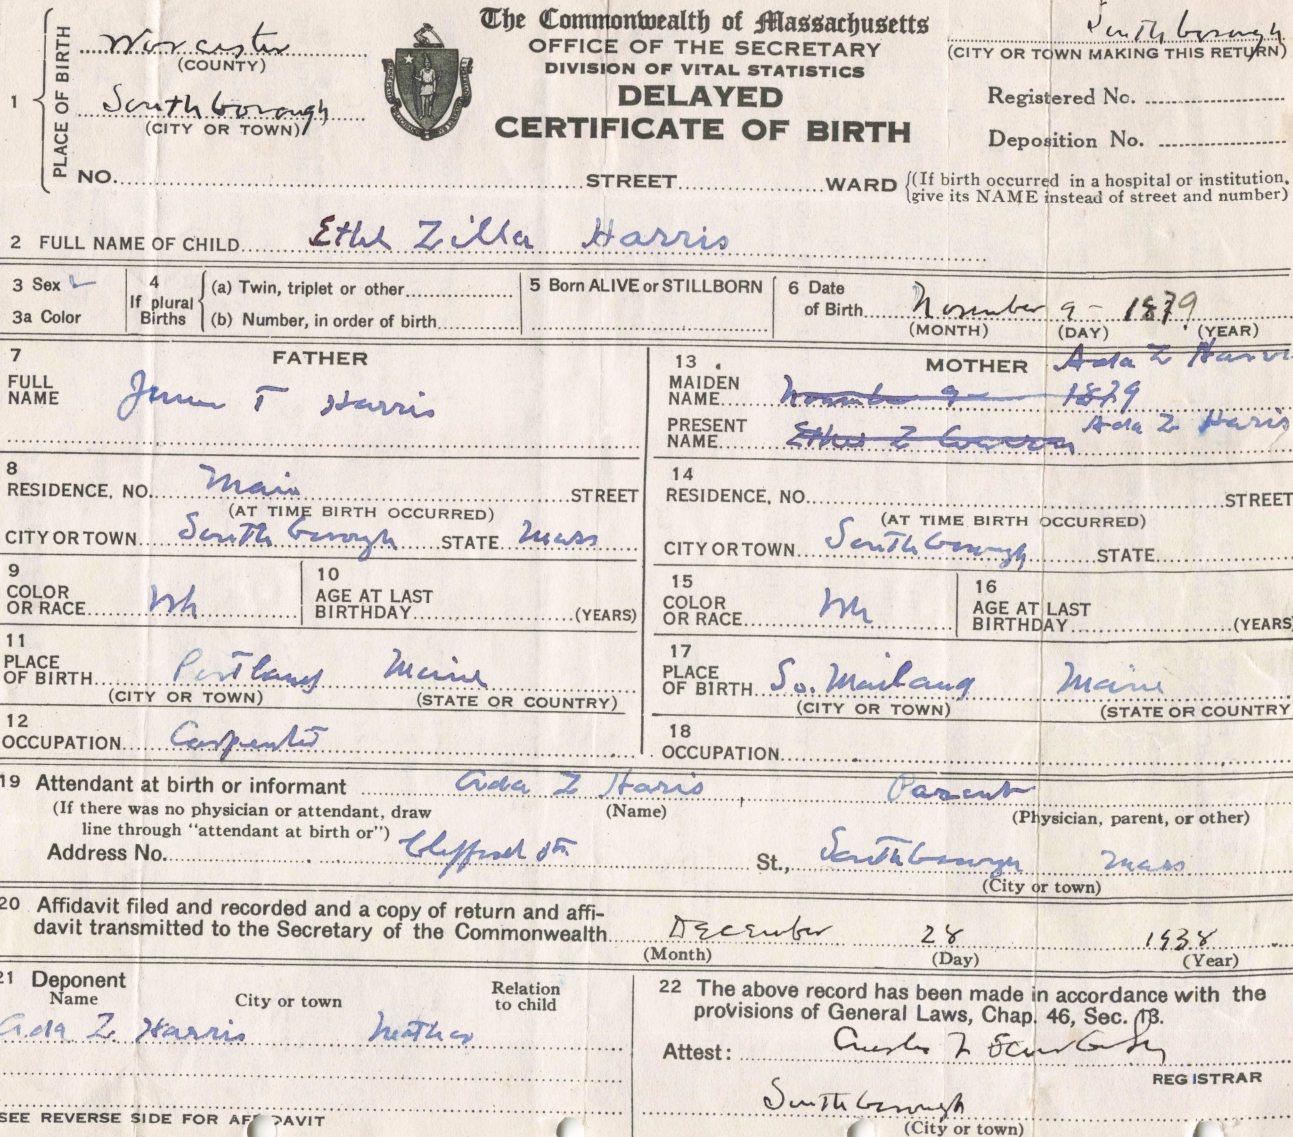 The Commonwealth of Massachusetts
OFFICE OF THE SECRETARY
DIVISION OF VITAL STATISTICS
DELAYED
CERTIFICATE OF BIRTH
1 PLACE OF BIRTH
Worcester
(COUNTY)
Southborough
(CITY OR TOWN)
Southborough
(CITY OR TOWN MAKING THIS RETURN)
Registered No.
Deposition No.
NO. STREET WARD (If birth occurred in a hospital or institution, give its NAME instead of street and number)
2 FULL NAME OF CHILD Ethel Zilla Harris
3 Sex
3a Color
4 If plural Births
(a) Twin, triplet or other
(b) Number, in order of birth
5 Born ALIVE or STILLBORN
6 Date of Birth November 9 - 1879
(MONTH) (DAY) (YEAR)
7 FATHER
FULL NAME T Harris
8
RESIDENCE, NO. Main STREET
(AT TIME BIRTH OCCURRED)
CITY OR TOWN Southborough STATE Mass
9 COLOR OR RACE Wh
10 AGE AT LAST BIRTHDAY (YEARS)
11 PLACE OF BIRTH Portland Maine
(CITY OR TOWN) (STATE OR COUNTRY)
12 OCCUPATION Carpenter
13 MOTHER Ada Z Harris
MAIDEN NAME November 9 - 1879
PRESENT NAME Ethel Z Ada Z Haris
14
RESIDENCE, NO. STREET
(AT TIME BIRTH OCCURRED)
CITY OR TOWN Southborough STATE
15 COLOR OR RACE Wh
16 AGE AT LAST BIRTHDAY (YEARS)
17 PLACE OF BIRTH So. Maine
(CITY OR TOWN) (STATE OR COUNTRY
18 OCCUPATION
19 Attendant at birth or informant Ada Z Haris Parent
(If there was no physician or attendant, draw (Name) (Physician, parent, or other)
line through "attendant at birth or")
Address No. St., Southborough Mass
(City or town)
20 Affidavit filed and recorded and a copy of return and affi-
davit transmitted to the Secretary of the Commonwealth December 28 1938
(Month) (Day) (Year)
21 Deponent
Name City or town Relation to child
Ada Z Harris Mother
SEE REVERSE SIDE FOR AFFIDAVIT
22 The above record has been made in accordance with the
provisions of General Laws, Chap. 46, Sec. 13.
Attest:
REGISTRAR
Southborough
(City or town)